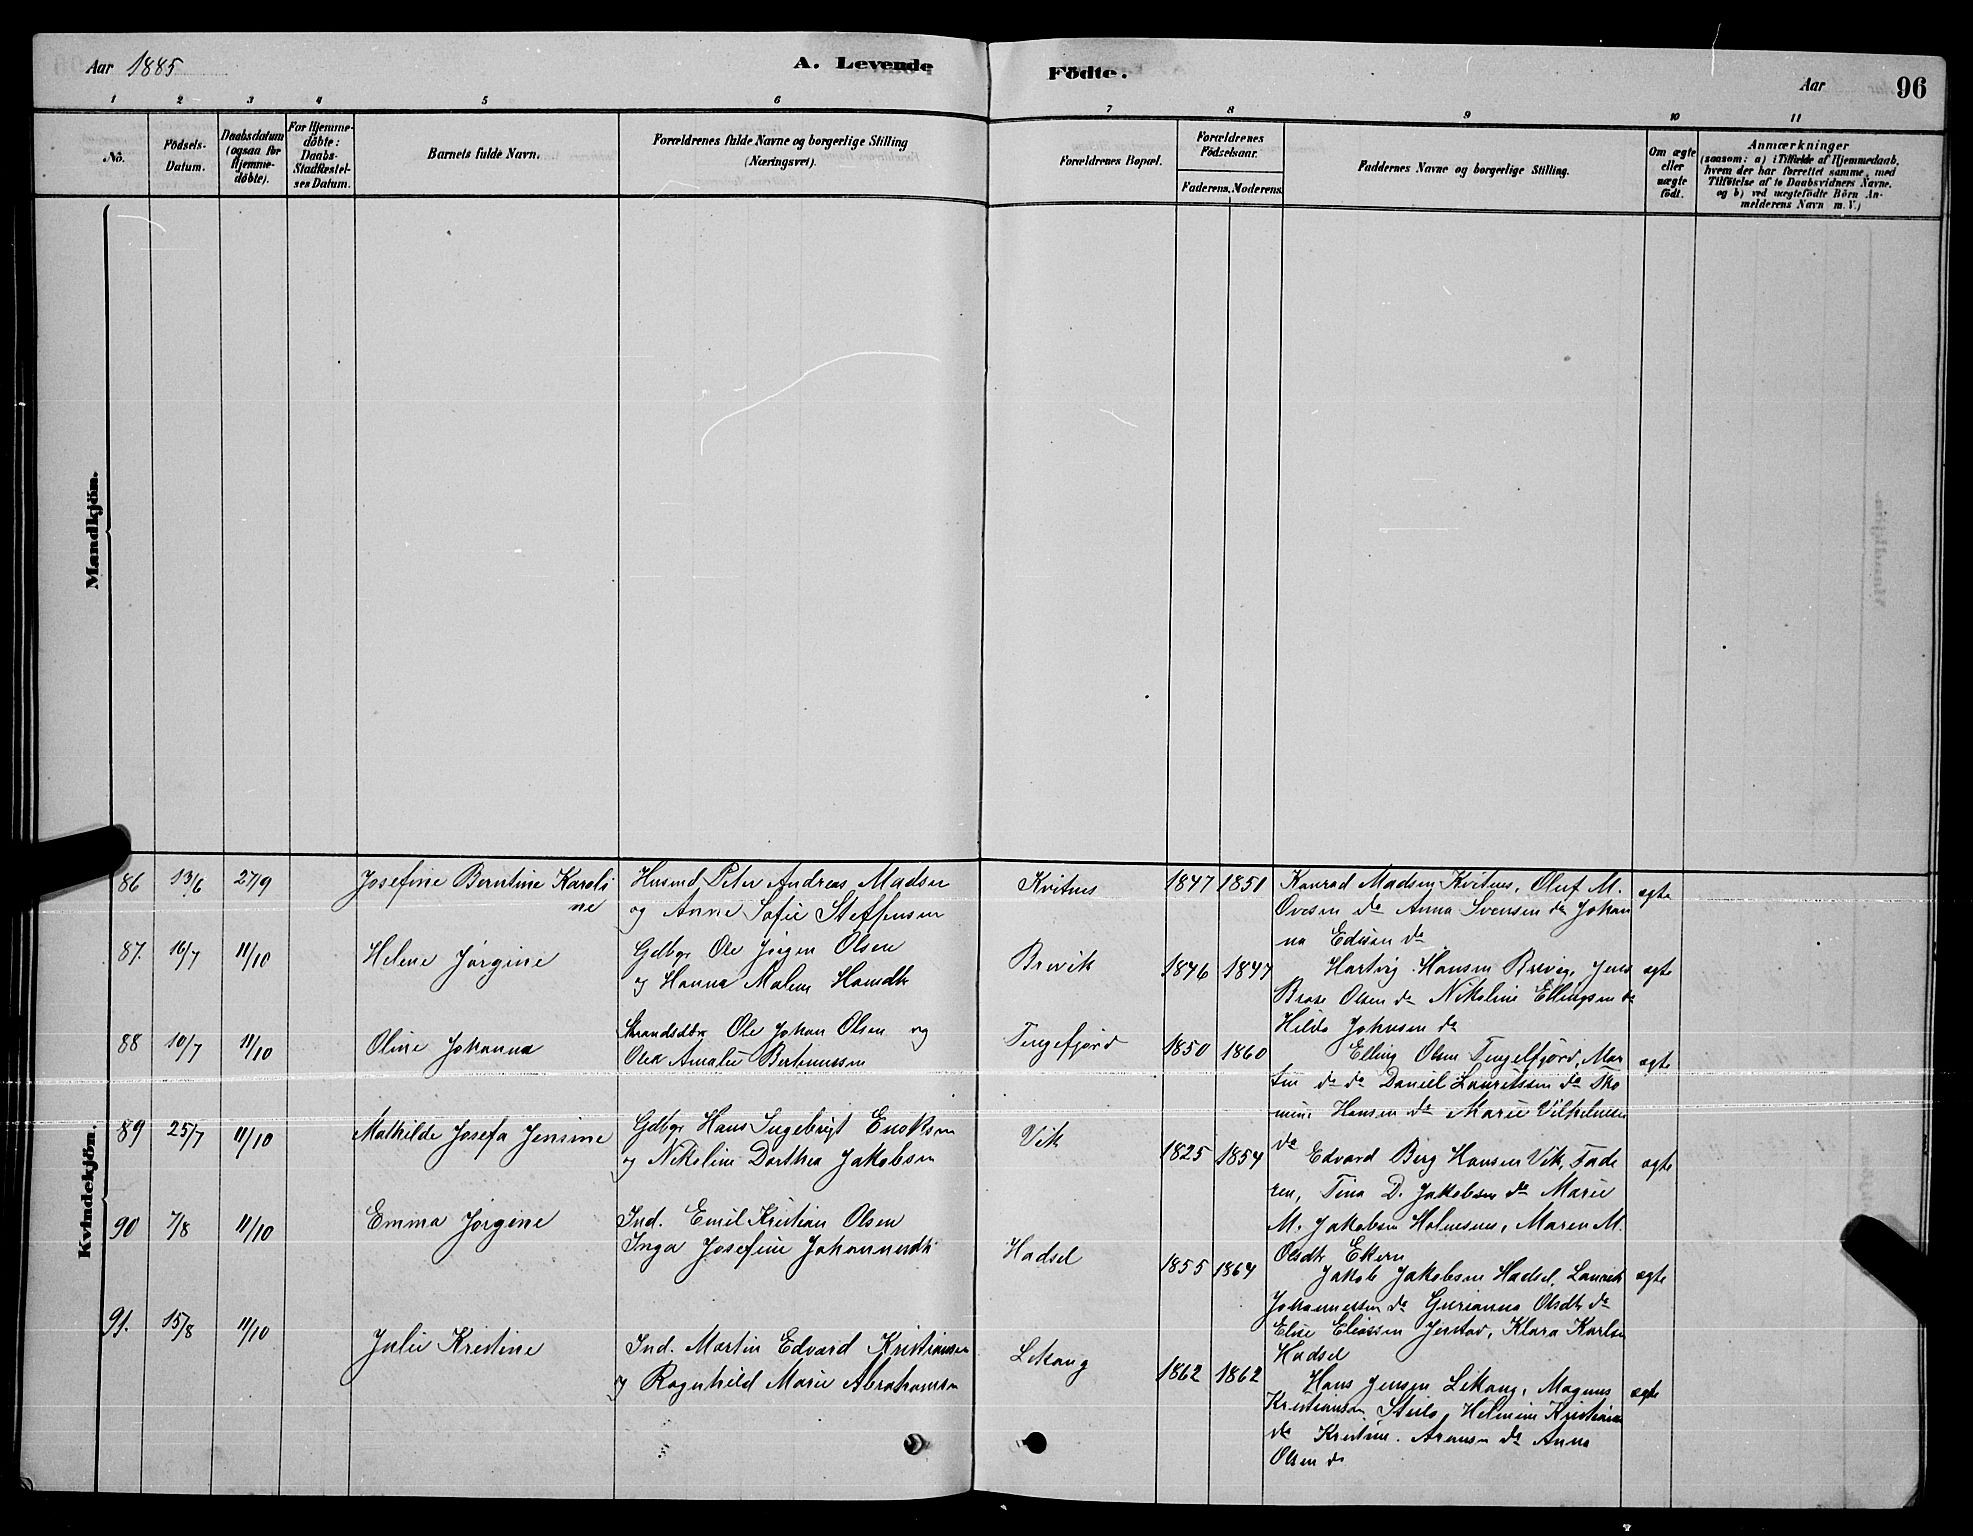 Aar 1885
A. Levende
Födte.
Aar
96
1 2 3 4 5 6 7 8 9 10 11
No.
Födsels-
Datum.
Daabsdatum
(ogsaa for
Hjemme-
döbte).
For Hjemme-
döbte:
Daabs-
Stadfæstel-
ses Datum.
Barnets fulde Navn.
Forældrenes fulde Navne og borgerlige Stilling
(Næringsvei).
Forældrenes Bopæl.
Forældrenes
Födselsaar.
Faderens. Moderens.
Faddernes Navne og borgerlige Stilling.
Om ægte
eller
uægte
födt.
Anmærkninger
(saasom: a) i Tilfælde af Hjemmedaab,
hvem der har forrettet samme, med
Tilföielse af to Daabsvidners Navne,
og b) ved uægtefödte Börn An-
melderens Navn m. V.)
Mandkjön.
Kvindekjön.
86 13/6 27/9 Josefine Berntine Karoli
ne
Husmd Peter Andreas Madsen
og Anne Sofie Steffensen
Kvitnes 1847 1851
Konrad Madsen Kvitnes, Oluf M.
Ovesen do Anna Svensen do Johan
na Edisen do
ægte
87. 16/7 11/10 Helene Jørgine
Gdbgr Ole Jörgen Olsen
og Hanna Malene Hansdtr
Brevik 1846 1847
Hartvig Hansen Brevig, Jens
Brose Olsen do Nikoline Ellingsen do
Hilda Johnsen do
ægte
88 10/7 11/10 Oline Johanna
Strandsdbr Ole Johan Olsen og
Olea Amalie Bertinussen
Tengefjord 1850 1860
Elling Olsen Tengelfjord, Mar
tin do do Daniel Lauritssen do Tho
mine Hansen do Marie Vilhelmsen
do
ægte
89 25/7 11/10 Mathilde Josefa Jensine
Gdbgr Hans Ingebrigt Enoksen
og Nikoline Dorthea Jakobsen
Vik 1825 1854
Edvard Berg Hansen Vik, Fade
ren, Tina D. Jakobsen do Marie
M. Jakobsen Holmsnes, Maren M.
Olsdtr Ekern
ægte
90 7/8 11/10 Emma Jørgine
Ind. Emil Kristian Olsen
Inga Josefine Johannesdtr
Hadsel 1855 1864
Jakob Jakobsen Hadsel, Laurits
Johannessen do Gurianna Olsdtr do
Elise Eliassen Jenstad, Klara Karlsen
Hadsel
ægte
91. 15/8 11/10 Julie Kristine
Ind. Martin Edvard Kristiansen
og Ragnhild Marie Abrahamsen
Lekang 1862 1862
Hans Jensen Lekang, Magnus
Kristiansen Steilo, Helmine Kristiansen
do Kristine Arensen do Anna
Olsen do
ægte